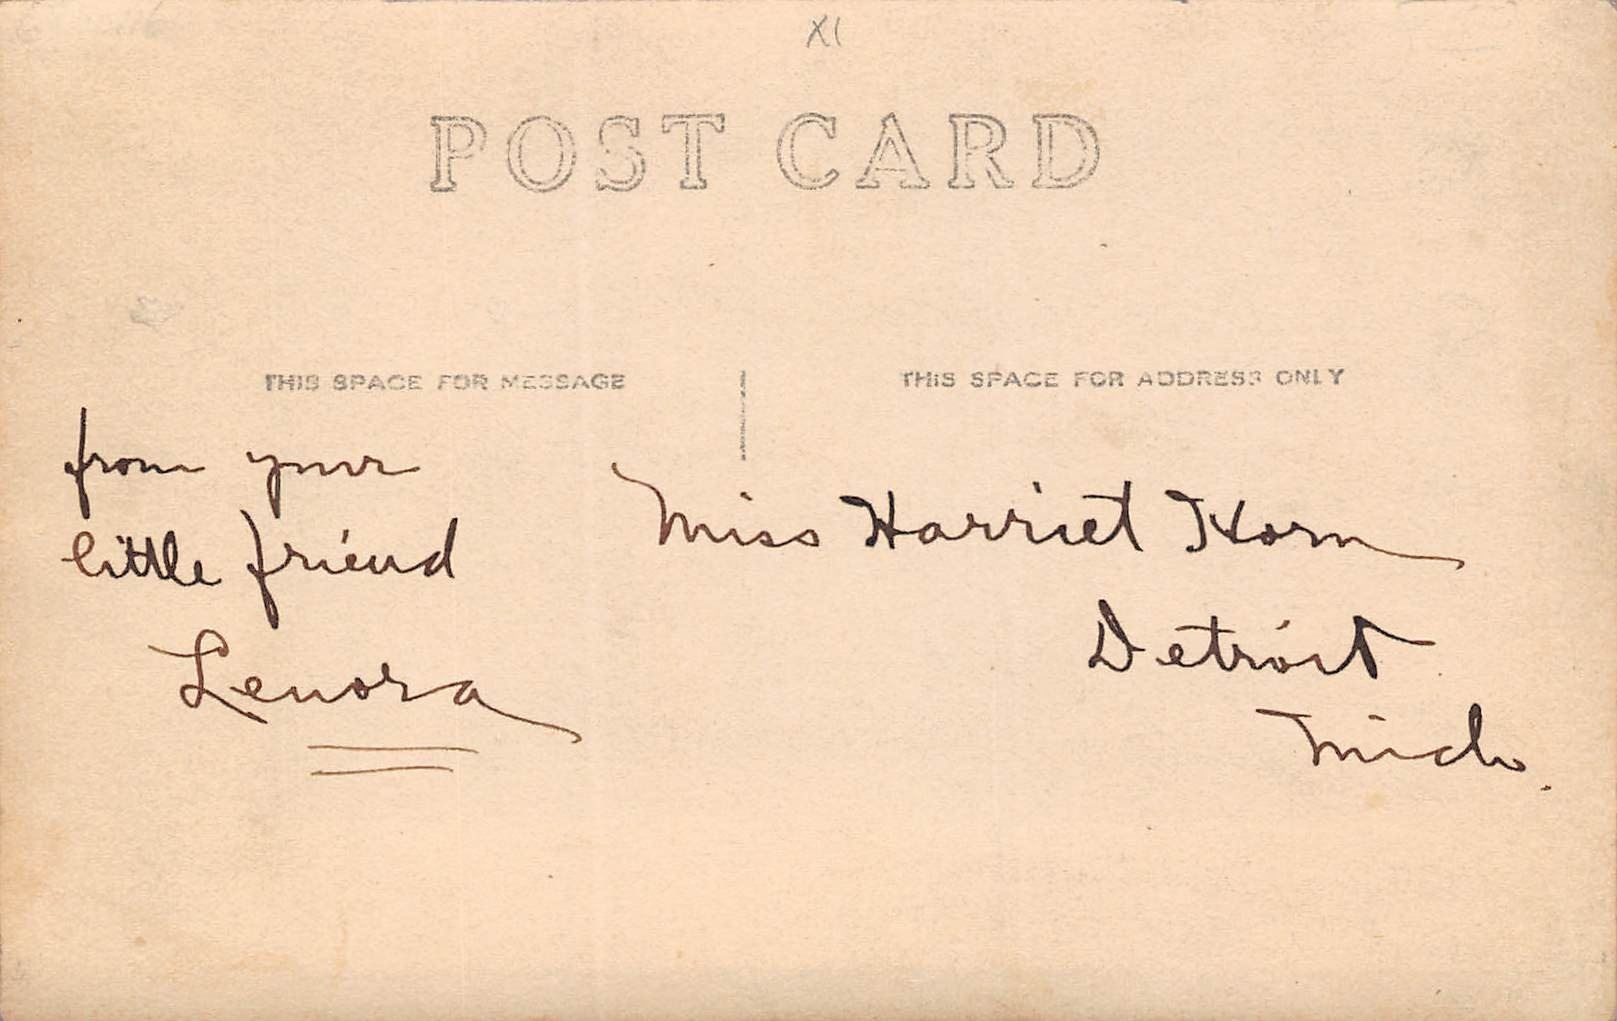 XI
POST CARD
THIS SPACE FOR MESSAGE
THIS SPACE FOR ADDRESS ONLY
from your
little friend
Lenora
Miss Harriet Horn
Detroit
Mich.